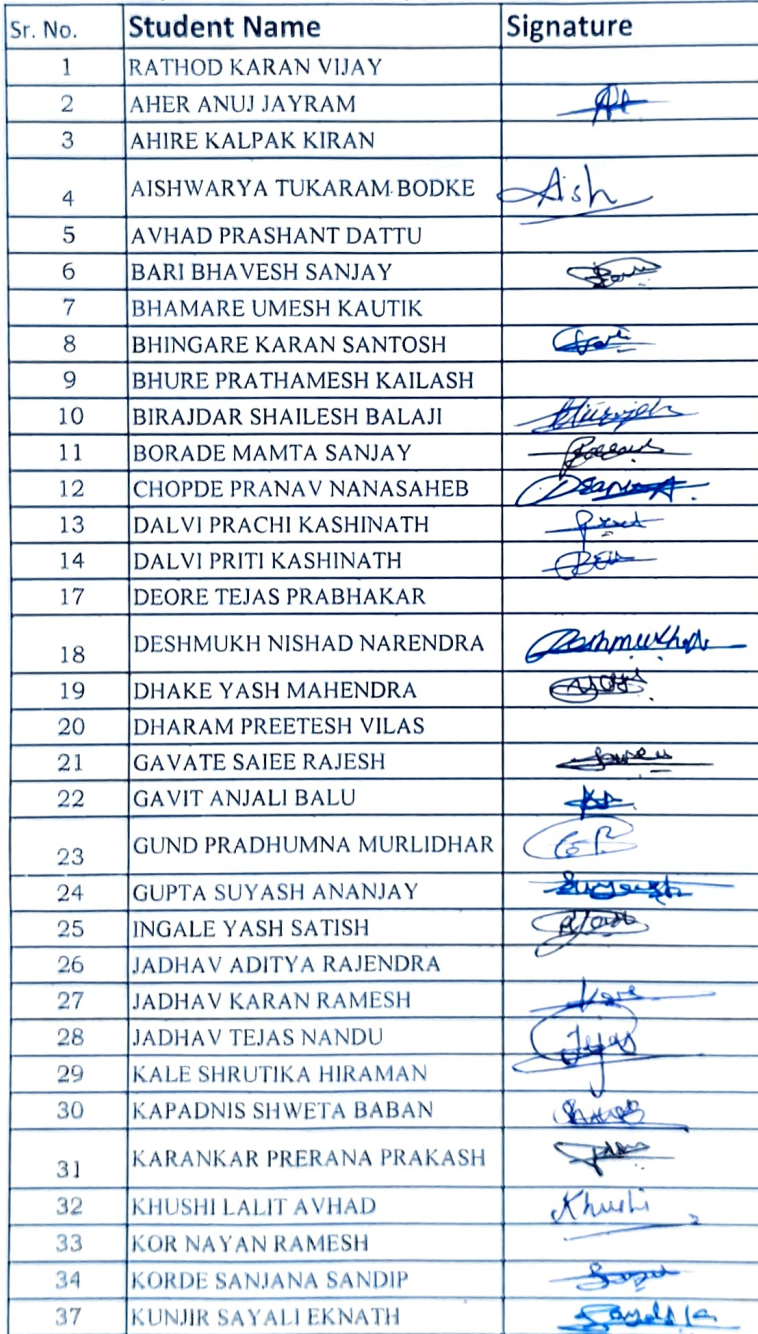 Sr. No. Student Name Signature
1 RATHOD KARAN VIJAY
2 AHER ANUJ JAYRAM
3 AHIRE KALPAK KIRAN
4 AISHWARYA TUKARAM BODKE Aish
5 AVHAD PRASHANT DATTU
6 BARI BHAVESH SANJAY
7 BHAMARE UMESH KAUTIK
8 BHINGARE KARAN SANTOSH
9 BHURE PRATHAMESH KAILASH
10 BIRAJDAR SHAILESH BALAJI
11 BORADE MAMTA SANJAY
12 CHOPDE PRANAV NANASAHEB
13 DALVI PRACHI KASHINATH
14 DALVI PRITI KASHINATH
17 DEORE TEJAS PRABHAKAR
18 DESHMUKH NISHAD NARENDRA
19 DHAKE YASH MAHENDRA
20 DHARAM PREETESH VILAS
21 GAVATE SAIEE RAJESH
22 GAVIT ANJALI BALU
23 GUND PRADHUMNA MURLIDHAR
24 GUPTA SUYASH ANANJAY
25 INGALE YASH SATISH
26 JADHAV ADITYA RAJENDRA
27 JADHAV KARAN RAMESH
28 JADHAV TEJAS NANDU Tejas
29 KALE SHRUTIKA HIRAMAN
30 KAPADNIS SHWETA BABAN
31 KARANKAR PRERANA PRAKASH
32 KHUSHI LALIT AVHAD Khushi
33 KOR NAYAN RAMESH
34 KORDE SANJANA SANDIP
37 KUNJIR SAYALI EKNATH